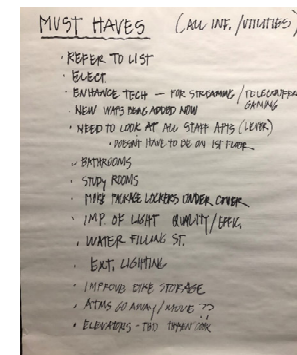 MUST HAVES (ALL INF. /UTILITIES)
· REFER TO LIST
· ELECT.
· ENHANCE TECH — FOR STREAMING/TELECONFEREN
GAMING
· NEW WAPS BEING ADDED NOW
· NEED TO LOOK AT ALL STAFF APTS (LEVER)
· DOESN'T HAVE TO BE ON 1ST FLOOR
· BATHROOMS
· STUDY ROOMS
· MORE PACKAGE LOCKERS UNDER COVER
· IMP. OF LIGHT QUALITY/EFFIC.
· WATER FILLING ST.
· EXT. LIGHTING
· IMPROVE BIKE STORAGE
· ATMS GO AWAY/MOVE ??
· ELEVATORS - TWO